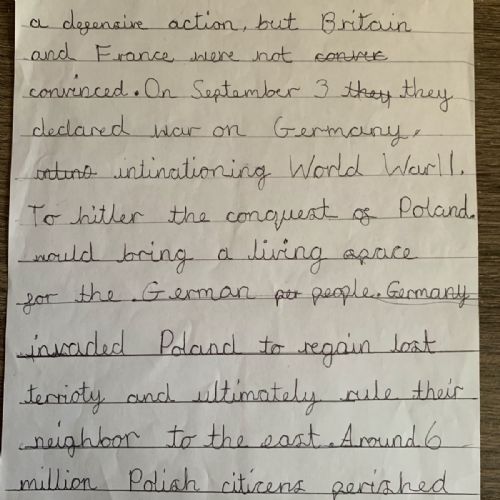 a degensive action, but Britain
and France were not conver
convinced. On September 3 they they
declared war on Germany,
intinationing World War II.
To hitler the conquest of Poland.
would bring a living space
for the German pe people. Germany
invaded Poland to regain lost
terrioty and ultimately rule their
neighbor to the east. Around 6
million Polish citicens perished